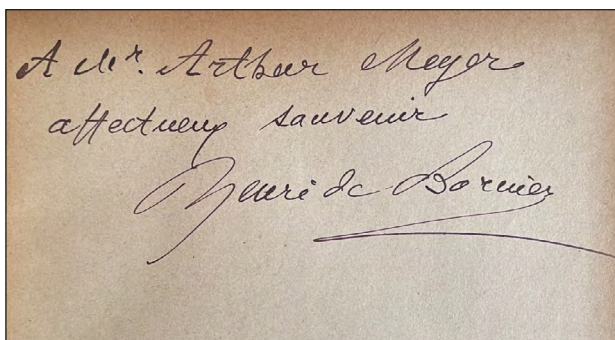 A Mr. Arthur Meyer
affectueux souvenir
Henri de Bornier